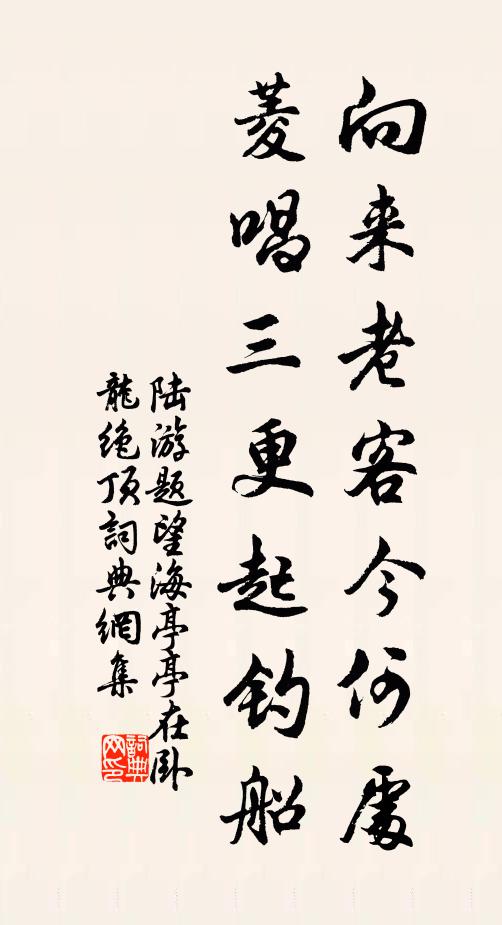 向来老客今何處
菱唱三更起钓船
陆游题望海亭亭在卧
龍絶頂詞典網集
詞典
网印